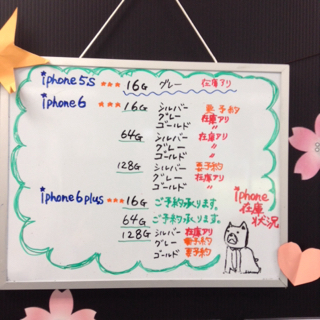 iphone5s *** 16G グレー 在庫アリ
iphone6 *** 16G シルバー 要予約
グレー 在庫アリ
ゴールド 〃
64G シルバー 在庫アリ
グレー 〃
ゴールド 〃
128G シルバー 要予約
グレー 在庫アリ
ゴールド 〃
iphone6plus *** 16G ご予約承ります。
64G ご予約承ります。
128G シルバー 在庫アリ
グレー 要予約
ゴールド 要予約
iphone
在庫
状況